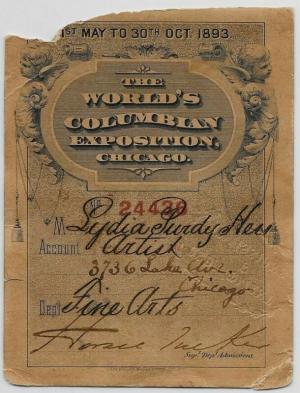 1ST MAY TO 30TH OCT. 1893.
THE
WORLD'S
COLUMBIAN
EXPOSITION.
CHICAGO.
No 24428
M Lydia Purdy Hess
Account Artist
3736 Lake Ave.
Chicago
Dept Fine Arts
Horace Tucker
Supt. Dept. Admissions